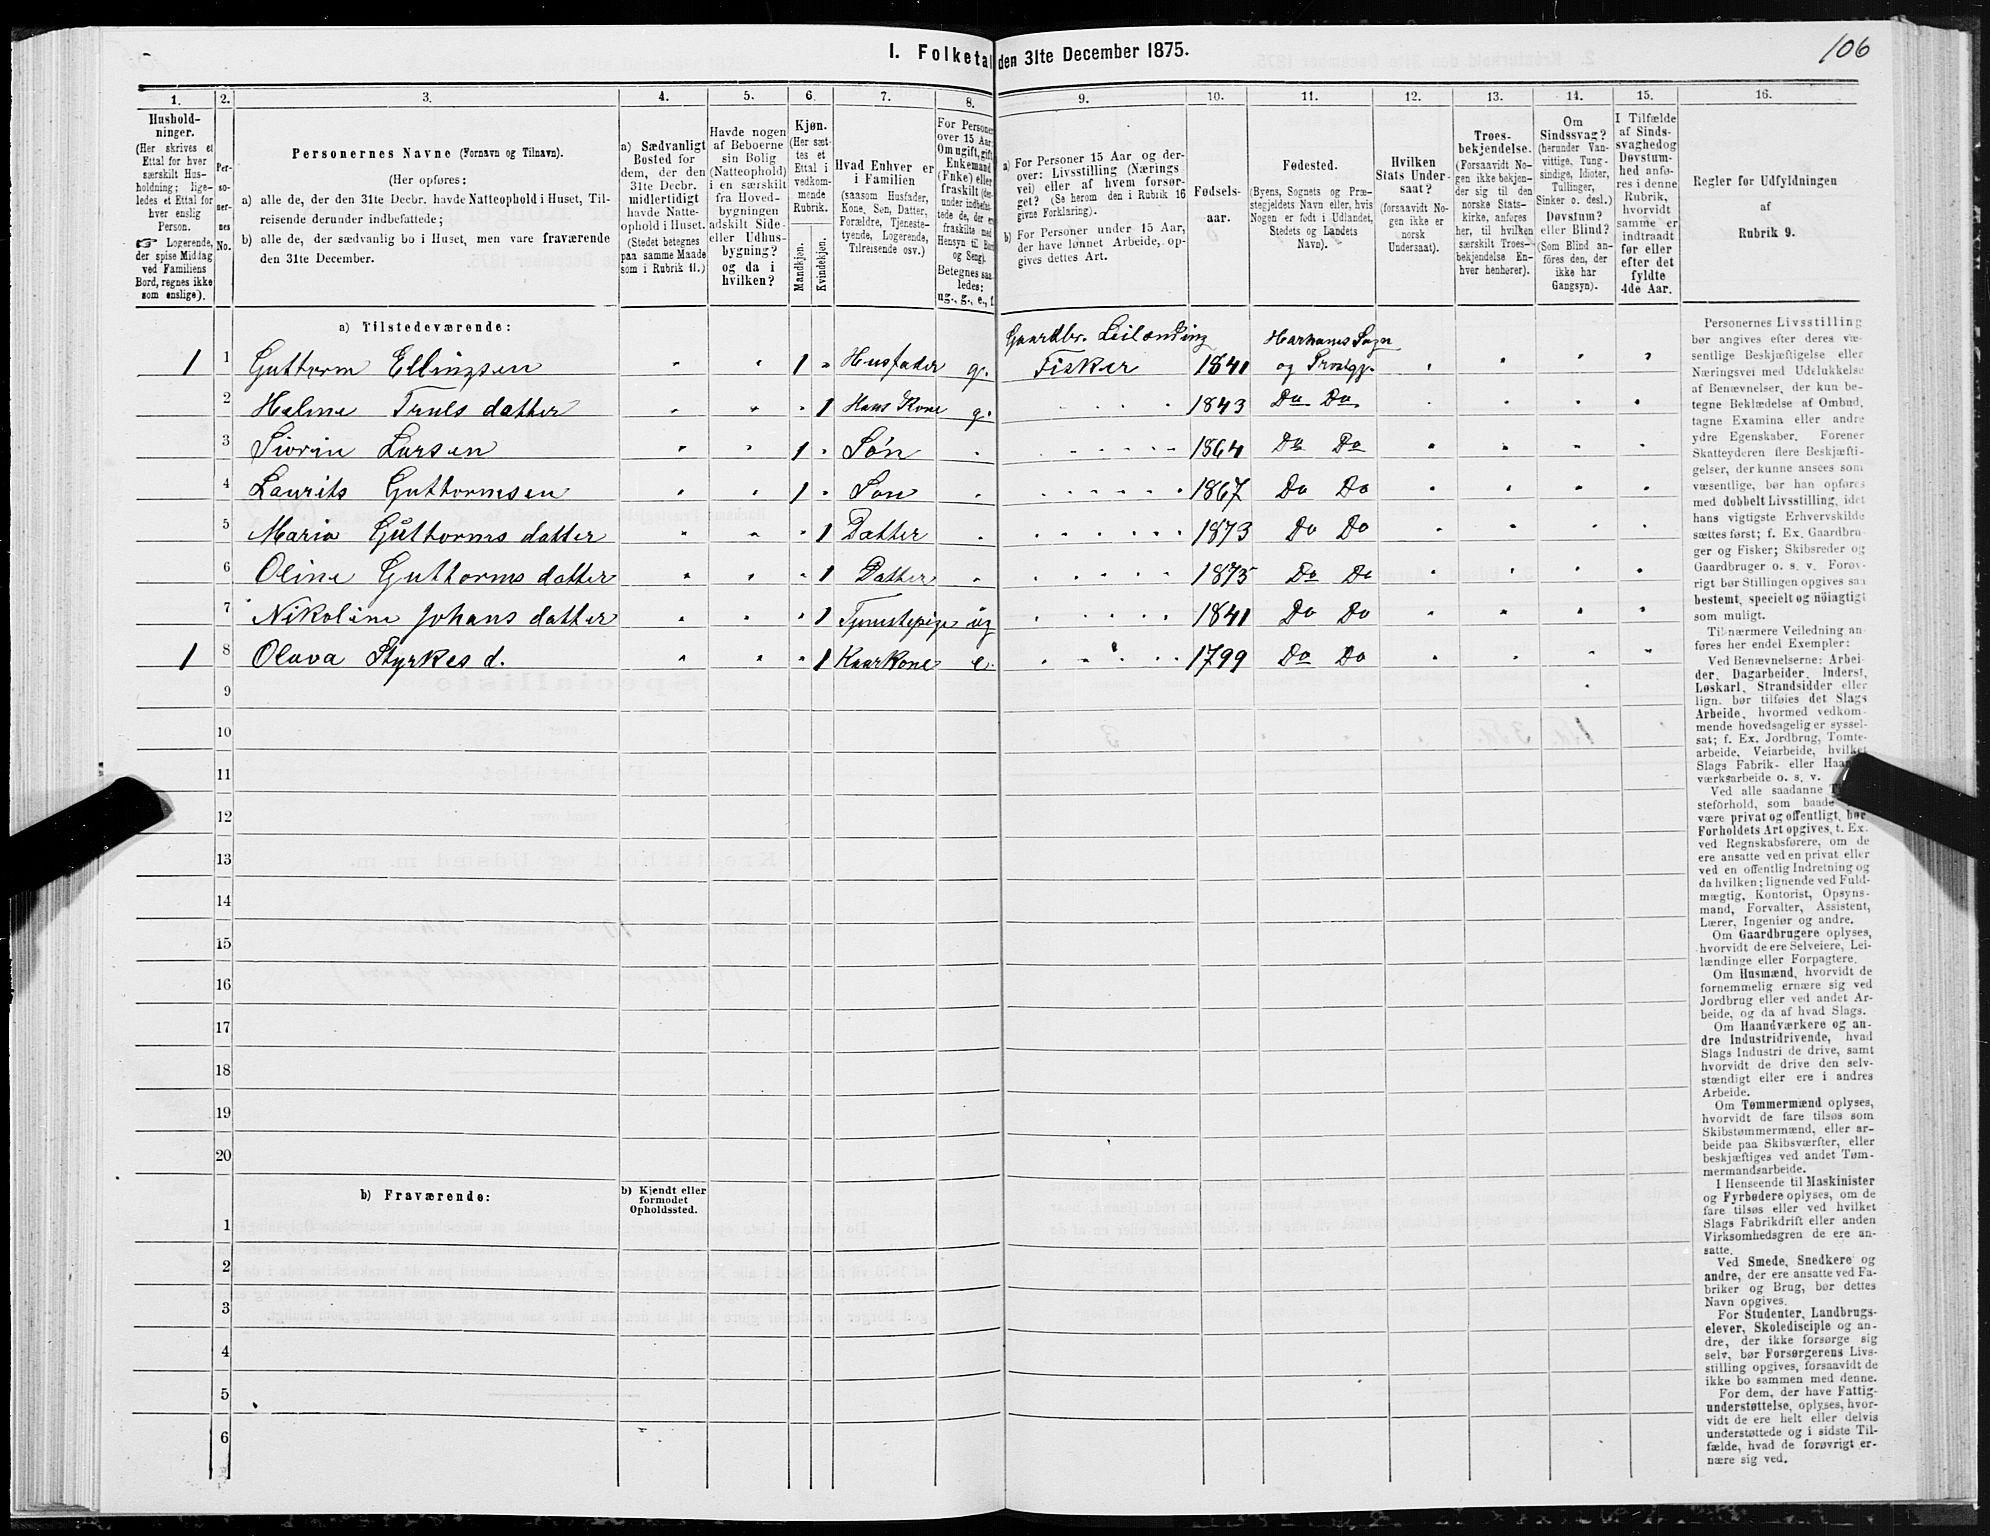 I. Folketal den 31te December 1875.
106
1.
2.
3.
4.
5.
6.
7.
8.
9.
10.
11.
12.
13.
14.
15.
16.
Hushold-
ninger.
(Her skrives et
Ettal for hver
særskilt Hus-
holdning; lige-
ledes et Ettal for
hver enslig
Person.
☞ Logerende,
der spise Middag
ved Familiens
Bord, regnes ikke
som enslige).
Per-
so-
ner-
nes
No.
Personernes Navne (Fornavn og Tilnavn).
(Her opføres:
a) alle de, der den 31te Decbr. havde Natteophold i Huset, Til-
reisende derunder indbefattede;
b) alle de, der sædvanlig bo i Huset, men vare fraværende
den 31te December.
a) Sædvanligt
Bosted for
dem, der den
31te Decbr.
midlertidigt
havde Natte-
ophold i Huset.
(Stedet betegnes
paa samme Maade
som i Rubrik 11.)
Havde nogen
af Beboerne
sin Bolig
(Natteophold)
i en særskilt
fra Hoved-
bygningen
adskilt Side-
eller Udhus-
bygning?
og da i
hvilken?
Kjøn.
(Her sæt-
tes et
Ettal i
vedkom-
mende
Rubrik.
Mandkjøn.
Kvindekjøn.
Hvad Enhver er
i Familien
(saasom Husfader,
Kone, Søn, Datter,
Forældre, Tjeneste-
tyende, Logerende,
Tilreisende osv.)
For Personer
over 15 Aar
Om ugift, gift,
Enkemand
(Enke) eller
fraskilt (der-
under indbefat-
tede de, der er
fraskilte med
Hensyn til Bord
og Seng).
Betegnes saa-
ledes:
ug., g., e., f.
a) For Personer 15 Aar og der-
over: Livsstilling (Nærings-
vei) eller af hvem forsør-
get? (Se herom den i Rubrik 16
givne Forklaring).
b) For Personer under 15 Aar,
der have lønnet Arbeide, op-
gives dettes Art.
Fødsels-
aar.
Fødested.
(Byens, Sognets og Præ-
stegjeldets Navn eller, hvis
Nogen er født i Udlandet,
Stedets og Landets
Navn).
Hvilken
Stats Under-
saat?
(forsaavidt No-
gen ikke er
norsk
Undersaat).
Troes-
bekjendelse.
(Forsaavidt No-
gen ikke bekjen-
der sig til den
norske Stats-
kirke, anføres
her, til hvilken
særskilt Troes-
bekjendelse En-
hver henhører).
Om
Sindssvag?
(herunder Van-
vittige, Tung-
sindige, Idioter,
Tullinger,
Sinker o. desl.)
Døvstum?
eller Blind?
(Som Blind an-
føres den, der
ikke har
Gangsyn).
I Tilfælde
af Sinds-
svaghed og
Døvstum-
hed anfø-
res i denne
Rubrik,
hvorvidt
samme er
indtraadt
før eller
efter det
fyldte
4de Aar.
Regler for Udfyldningen
af
Rubrik 9.
a) Tilstedeværende:
1 1 Guttorm Ellingsen 1 Husfader g. Gaardbr. Leilænding Fisker 1841 Harhams Sogn og Prstgj.
2 Halme Truls datter 1 Hans Kone g. 1843 Do Do
3 Siorin Larsen 1 Søn 1864 Do Do
4 Laurits Guttormsen 1 Søn 1867 Do Do
5 Maria Guttorms datter 1 Datter 1873 Do Do
6 Oline Guttorms datter 1 Datter 1875 Do Do
7 Nikoline Johans datter 1 Tjenstepige ug 1841 Do Do
1 8 Olava Styrkes d. 1 Kaarkone e. 1799 Do Do
9
10
11
12
13
14
15
16
17
18
19
20
b) Fraværende:
b) Kjendt eller
formodet
Opholdssted.
1
2
3
4
5
6
Personernes Livsstilling
bør angives efter deres væ-
sentlige Beskjæftigelse eller
Næringsvei med Udelukkelse
af Benævnelser, der kun be-
tegne Beklædelse af Ombud,
tagne Examina eller andre
ydre Egenskaber. Forener
Skatteyderen flere Beskjæfti-
gelser, der kunne ansees som
væsentlige, bør han opføres
med dobbelt Livsstilling, idet
hans vigtigste Erhvervskilde
sættes først; f. Ex. Gaardbru-
ger og Fisker; Skibsreder og
Gaardbruger o. s. v. Forøv-
rigt bør Stillingen opgives saa
bestemt, specielt og nöiagtigt
som muligt.
Til nærmere Veiledning an-
føres her endel Exempler:
Ved Benævnelserne: Arbei-
der, Dagarbeider, Inderst,
Løskarl, Strandsidder eller
lign. bør tilføies det Slags
Arbeide, hvormed vedkom-
mende hovedsagelig er syssel-
sat; f. Ex. Jordbrug, Tomte-
arbeide, Veiarbeide, hvilket
Slags Fabrik- eller Haand-
værksarbeide o. s. v.
Ved alle saadanne
steforhold, som baade
være privat og offentligt, bør
Forholdets Art opgives, t. Ex.
ved Regnskabsførere, om de
ere ansatte ved en privat eller
ved en offentlig Indretning og
da hvilken; lignende ved Fuld-
mægtig, Kontorist, Opsyns-
mand, Forvalter, Assistent,
Lærer, Ingeniør og andre.
Om Gaardbrugere oplyses,
hvorvidt de ere Selveiere, Lei-
lændinge eller Forpagtere.
Om Husmænd, hvorvidt de
fornemmelig ernære sig ved
Jordbrug eller ved andet Ar-
beide, og da af hvad Slags.
Om Haandværkere og an-
dre Industridrivende, hvad
Slags Industri de drive, samt
hvorvidt de drive den selv-
stændigt eller ere i andres
Arbeide.
Om Tømmermænd oplyses,
hvorvidt de fare tilsøs som
Skibstømmermænd, eller ar-
beide paa Skibsværfter, eller
beskjæftiges ved andet Tøm-
mermandsarbeide.
I Henseende til Maskinister
og Fyrbødere oplyses, om de
fare tilsøs eller ved hvilket
Slags Fabrikdrift eller anden
Virksomhedsgren de ere an-
satte.
Ved Smede, Snedkere og
andre, der ere ansatte ved Fa-
briker og Brug, bør dettes
Navn opgives.
For Studenter, Landbrugs-
elever, Skoledisciple og an-
dre, der ikke forsørge sig
selv, bør Forsørgerens Livs-
stilling opgives, forsaavidt de
ikke bo sammen med denne.
For dem, der have Fattig-
understøttelse, oplyses, hvor-
vidt de ere helt eller delvis
understøttede og i sidste Til-
fælde, hvad de forøvrigt er-
nære sig ved.